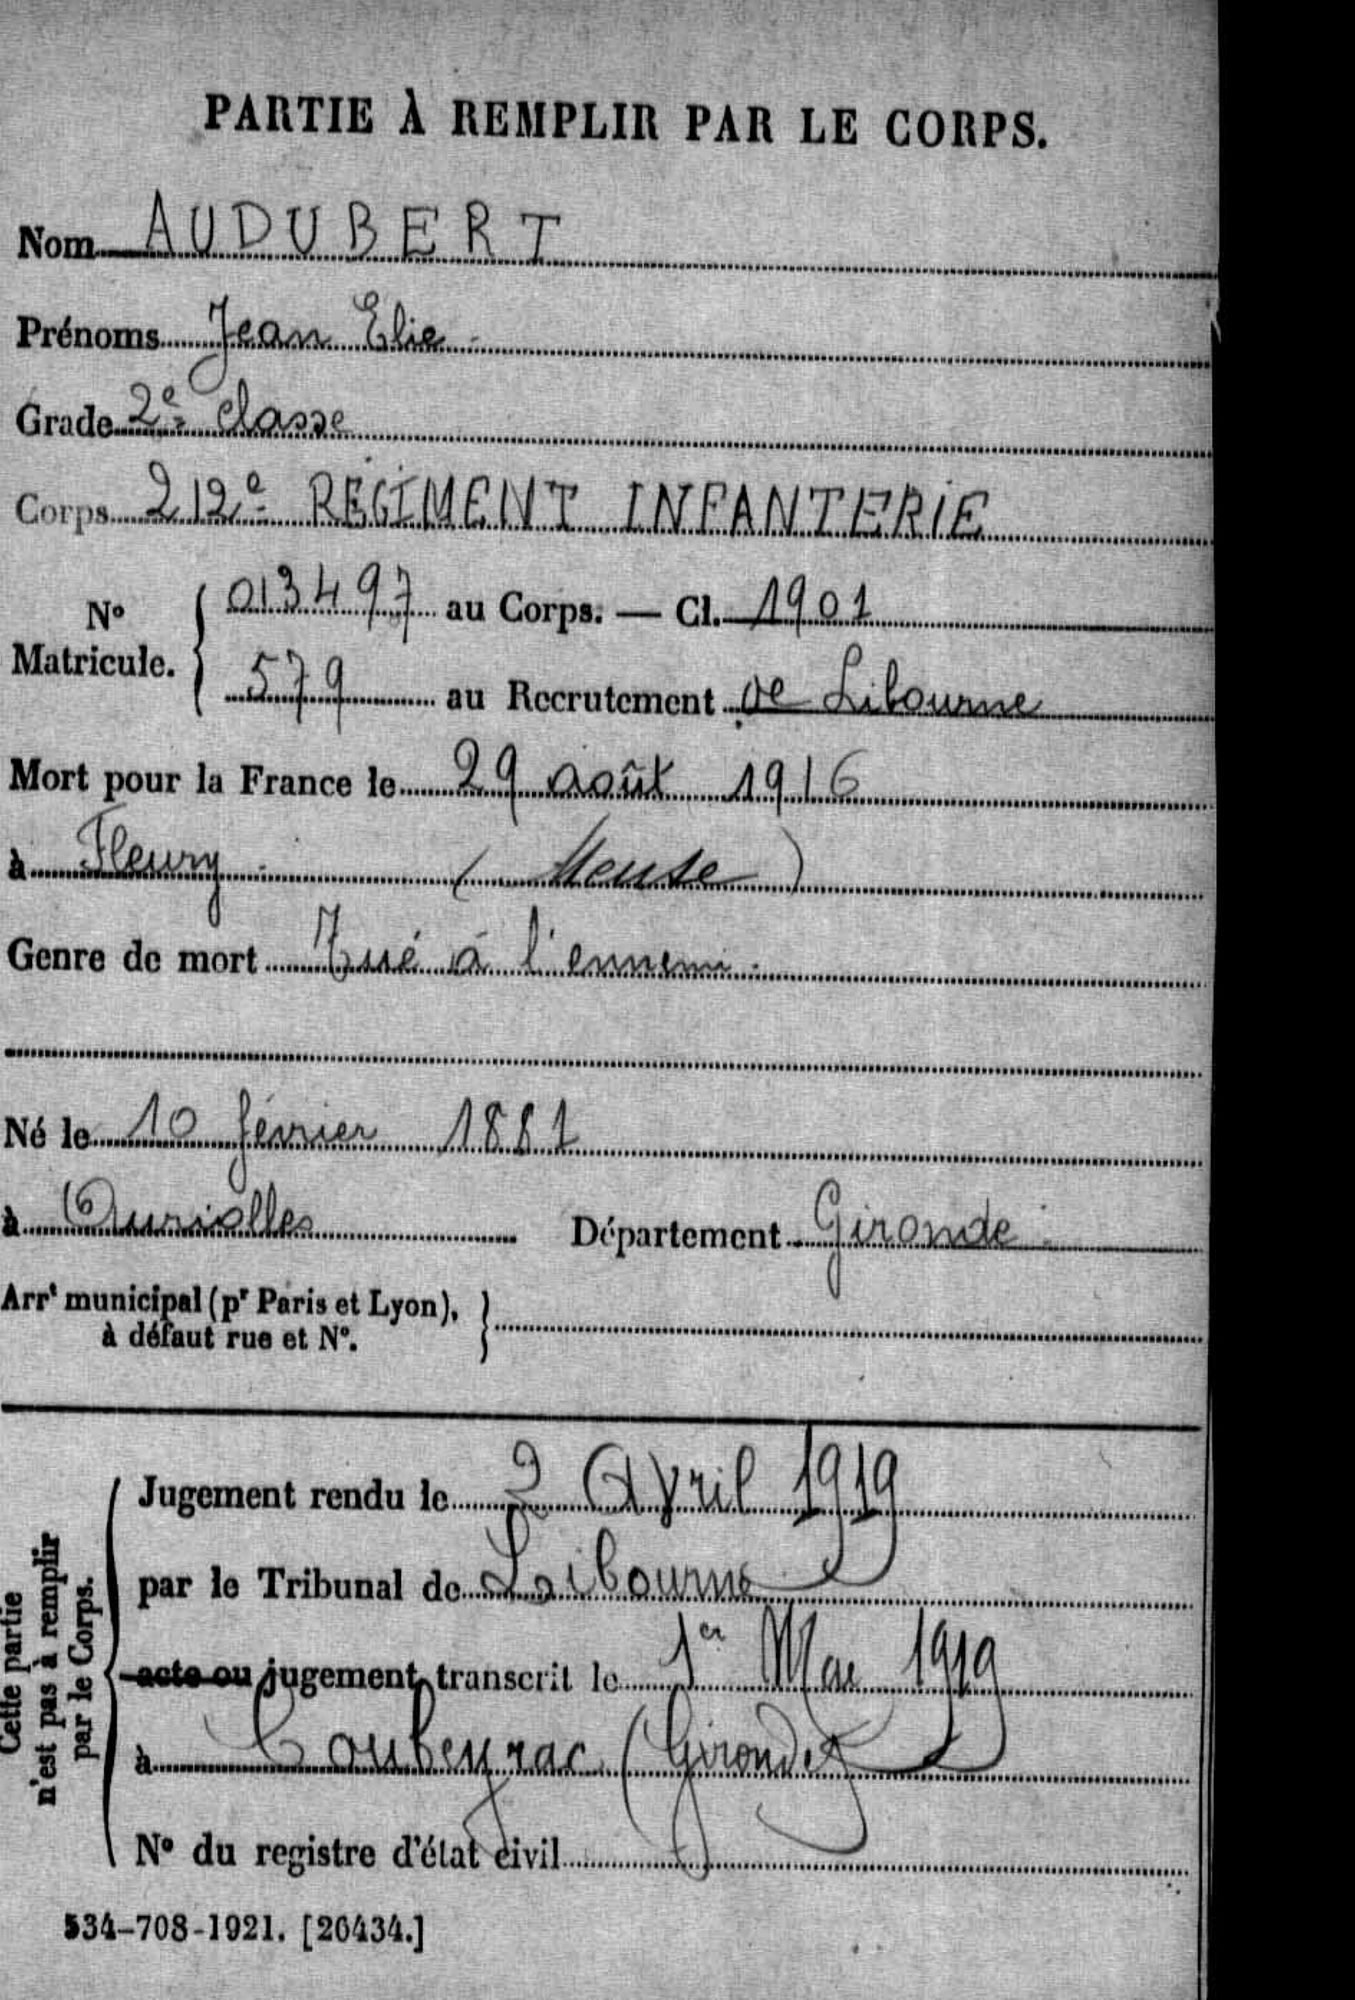 PARTIE À REMPLIR PAR LE CORPS.
Nom AUDUBERT
Prénoms Jean Elie
Grade 2e classe
Corps 212e RÉGIMENT INFANTERIE
No Matricule. { 013497 au Corps. — Cl. 1901
579 au Recrutement de Libourne
Mort pour la France le 29 août 1916
à Fleury (Meuse)
Genre de mort Tué à l'ennemi.
Né le 10 février 1881
à Auriolles Département Gironde
Arrt municipal (pr Paris et Lyon),
à défaut rue et No.
Cette partie
n'est pas à remplir
par le Corps.
Jugement rendu le 2 Avril 1919
par le Tribunal de Libourne
acte ou jugement transcrit le 1er Mai 1919
à Caubeyrac (Gironde)
No du registre d'état civil
534-708-1921. [26434.]